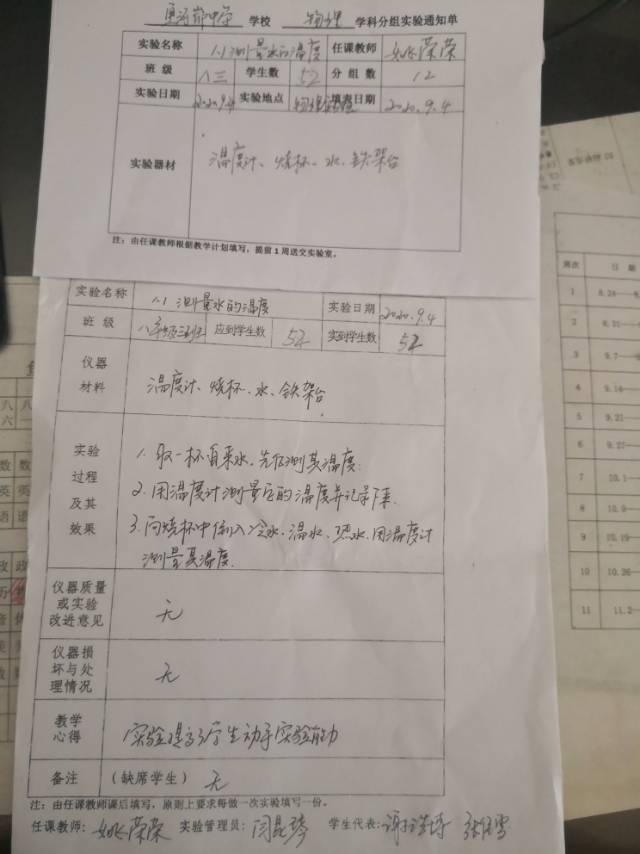 学校 物理 学科分组实验通知单
实验名称 1.1测量水的温度 任课教师 姚荣荣
班级 八三 学生数 52 分组数 12
实验日期 2020.9.4 实验地点 填表日期 2020.9.4
实验器材 温度计、烧杯、水、铁架台
注：由任课教师根据教学计划填写，提前1周送交实验室。
实验名称 1.1 测量水的温度 实验日期 2020.9.4
班级 八年级三班 应到学生数 52 实到学生数 52
仪器材料 温度计、烧杯、水、铁架台
实验过程及其效果
1.取一杯自来水，先估测其温度
2.用温度计测量它的温度并记录下来.
3.向烧杯中倒入冷水、温水、热水.用温度计
测量其温度.
仪器质量或实验改进意见 无
仪器损坏与处理情况 无
教学心得 实验提高了学生动手实验能力
备注 （缺席学生） 无
注：由任课教师课后填写，原则上要求每做一次实验填写一份。
任课教师：姚荣荣 实验管理员：闫昆琴 学生代表：
周次 日期
1 8.24
2 8.31
3 9.7
4 9.14
5 9.21
6 9.27
7 10.1
8 10.9
9 10.19
10 10.26
11 11.2